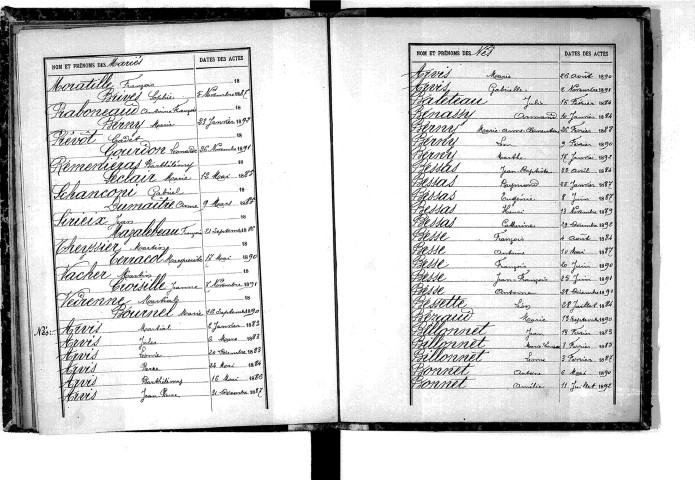 NOM ET PRÉNOMS DES Mariés DATES DES ACTES
Moratille François 18
Brives Sophie 5 Novembre 1887
Praboneaud Antoine François 18
Berny Marie 23 Janvier 1892
Prévôt Cadet 18
Gourdon Léonarde 26 Novembre 1891
Remenieras Barthélémy 18
Leclair Marie 12 Mai 1885
Schanconi Gabriel 18
Dumaitre Anne 9 Mars 1886
Sirieix Jean 18
Mazalebeau François 21 Septembre 1886
Theyssier Martin 18
Cerracol Marguerite 17 Mai 1890
Vacher Martin 18
Croisille Jeanne 7 Novembre 1891
Varenne Martial 18
Bournel Marie 12 Septembre 1890
Nés:- Arvis Martial 2 Janvier 1883
Arvis Jules 6 Mars 1883
Arvis Léonie 20 Décembre 1883
Arvis 24 Mai 1884
Arvis Barthélémy 16 Mai 1886
Arvis Jean 21 Décembre 1887
NOM ET PRÉNOMS DES Nés DATES DES ACTES
Arvis Marie 26 Août 1890
Arvis Gabrielle 2 Novembre 1891
Baleteau Julie 15 Février 1884
Benassy Armand 14 Janvier 1884
Berny Marie Anne Clémentine 26 Février 1887
Berny 9 Février 1890
Berny Marthe 18 Janvier 1892
Bessas Jean Baptiste 22 Avril 1884
Bessas Raymond 25 Janvier 1887
Bessas Eugénie 8 Juin 1887
Bessas Henri 13 Novembre 1889
Bessas Catherine 29 Décembre 1892
Besse François 4 Août 1884
Besse Antoine 10 Mai 1887
Besse François 20 Juin 1890
Besse Jean François 25 Juin 1891
Besse Antoine 28 Décembre 1891
Bessette 28 Juillet 1884
Beraud Marie 19 Septembre 1890
Billonnet Jean 14 Février 1883
Billonnet Marie Louise 1 Février 1885
Billonnet 3 Février 1887
Bonnet Antoine 6 Mai 1890
Bonnet Amélie 11 Juillet 1892